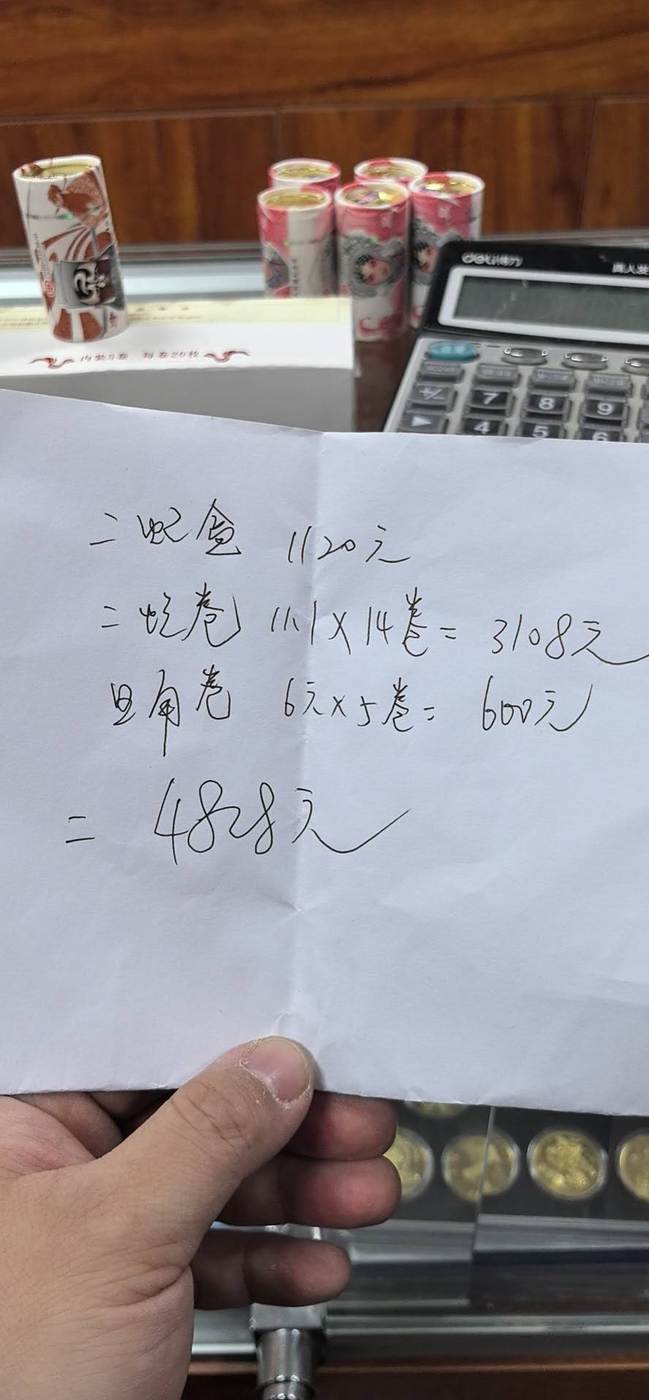 deli 得力
7 8 9
4 5 6
内装5卷 每卷20枚
二蛇盒 1120元
二蛇卷 11.1×14卷= 3108元
旦角卷 6元×5卷= 600元
= 4828元